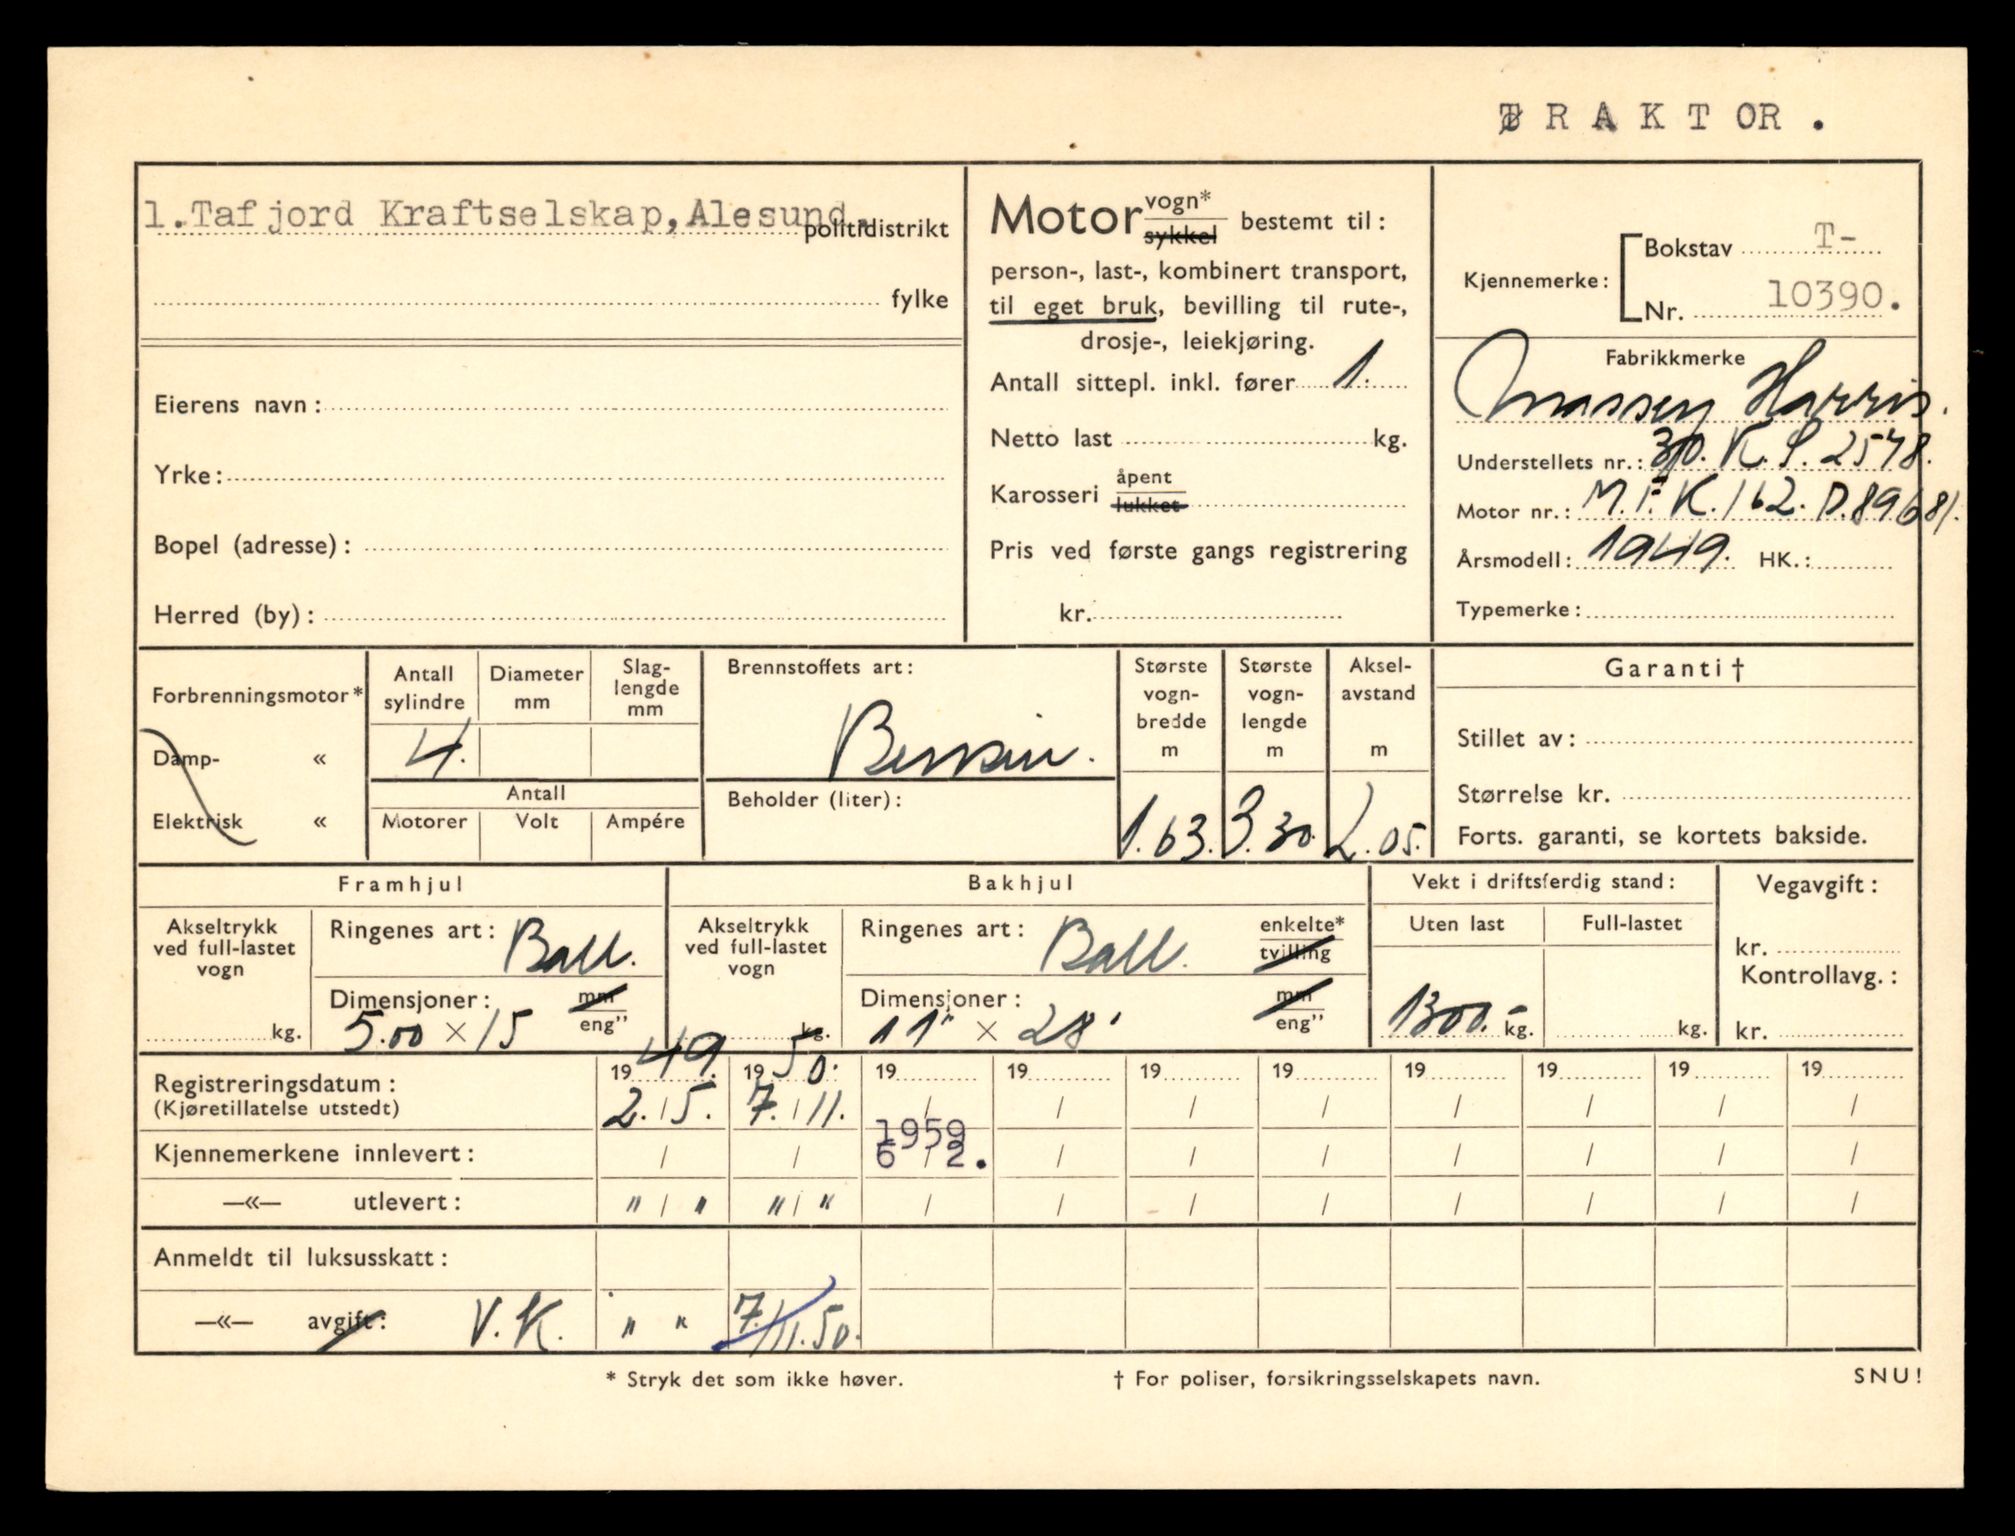 TRAKTOR.
1. Tafjord Kraftselskap, Alesund.
politidistrikt
fylke
Eierens navn:
Yrke:
Bopel (adresse):
Herred (by):
Motor vogn* sykkel bestemt til:
person-, last-, kombinert transport,
til eget bruk, bevilling til rute-,
drosje-, leiekjøring.
Antall sittepl. inkl. fører 1.
Netto last kg.
Karosseri åpent lukket
Pris ved første gangs registrering
kr.
Kjennemerke: Bokstav T-
Nr. 10390.
Fabrikkmerke
Massey Harris.
Understellets nr.: 30. K. S. 2548.
Motor nr.: M. F. K. 162. D. 89681.
Årsmodell: 1949. HK.:
Typemerke:
Forbrenningsmotor*
Damp- «
Elektrisk «
Antall sylindre
Diameter mm
Slag-lengde mm
4.
Antall
Motorer Volt Ampére
Brennstoffets art:
Bensin.
Beholder (liter):
Største vogn-bredde m
1.63.
Største vogn-lengde m
3.30.
Aksel-avstand m
2.05.
Garanti †
Stillet av:
Størrelse kr.
Forts. garanti, se kortets bakside.
Framhjul
Akseltrykk ved full-lastet vogn
kg.
Ringenes art: Ball.
Dimensjoner: mm eng"
5.00 × 15
Bakhjul
Akseltrykk ved full-lastet vogn
kg.
Ringenes art: Ball. enkelte* tvilling
Dimensjoner: mm eng"
11" × 28'
Vekt i driftsferdig stand:
Uten last Full-lastet
1300.- kg. kg.
Vegavgift:
kr.
Kontrollavg.:
kr.
Registreringsdatum: 1949. 1950. 19 19 19 19 19 19 19 19
(Kjøretillatelse utstedt) 2./5. 7./11. / / / / / / / /
1959
Kjennemerkene innlevert: / / 6/2. / / / / / / /
—«— utlevert: " / " " / " / / / / / / / /
Anmeldt til luksusskatt:
—«— avgift: V. K. " " 7./11.50.
* Stryk det som ikke høver. † For poliser, forsikringsselskapets navn. SNU!